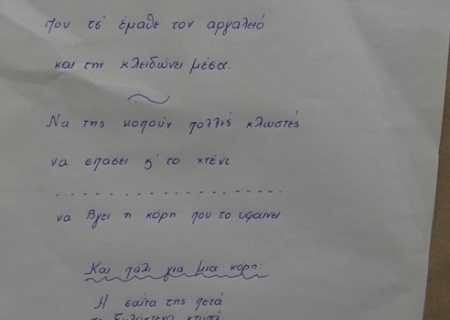 που τσ' έμαθε τον αργαλειό
και την κλειδώνει μέσα.
Να της κοπούν πολλές κλωστές
να σπάσει κ' το χτένι
. . . . . . . . . . . . . . . . . . . . . . . .
να βγει η κόρη που το υφαίνει
Και πάλι για μια κόρη:
Η σαΐτα της πετά
το ξυλόκτενο κτυπά